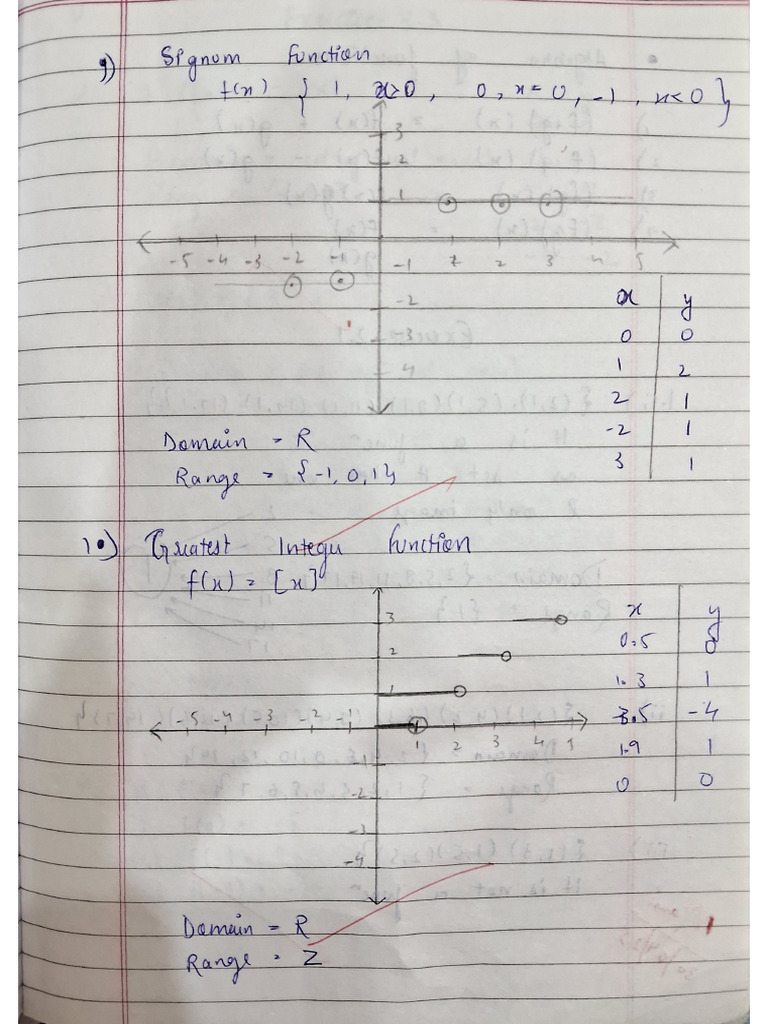 9) Signum function
f(x) { 1, x>0, 0, x=0, -1, x<0 }
3
2
1
-5 -4 -3 -2 -1 1 2 3 4 5
-1
-2
-3
-4
x y
0 0
1 2
2 1
-2 1
3 1
Domain = R
Range = {-1, 0, 1}
10) Greatest Integer function
f(x) = [x]
3
2
1
-5 -4 -3 -2 -1 1 2 3 4 5
-2
-3
-4
x y
0.5 0
1.3 1
3.5 -4
1.9 1
0 0
Domain = R
Range = Z